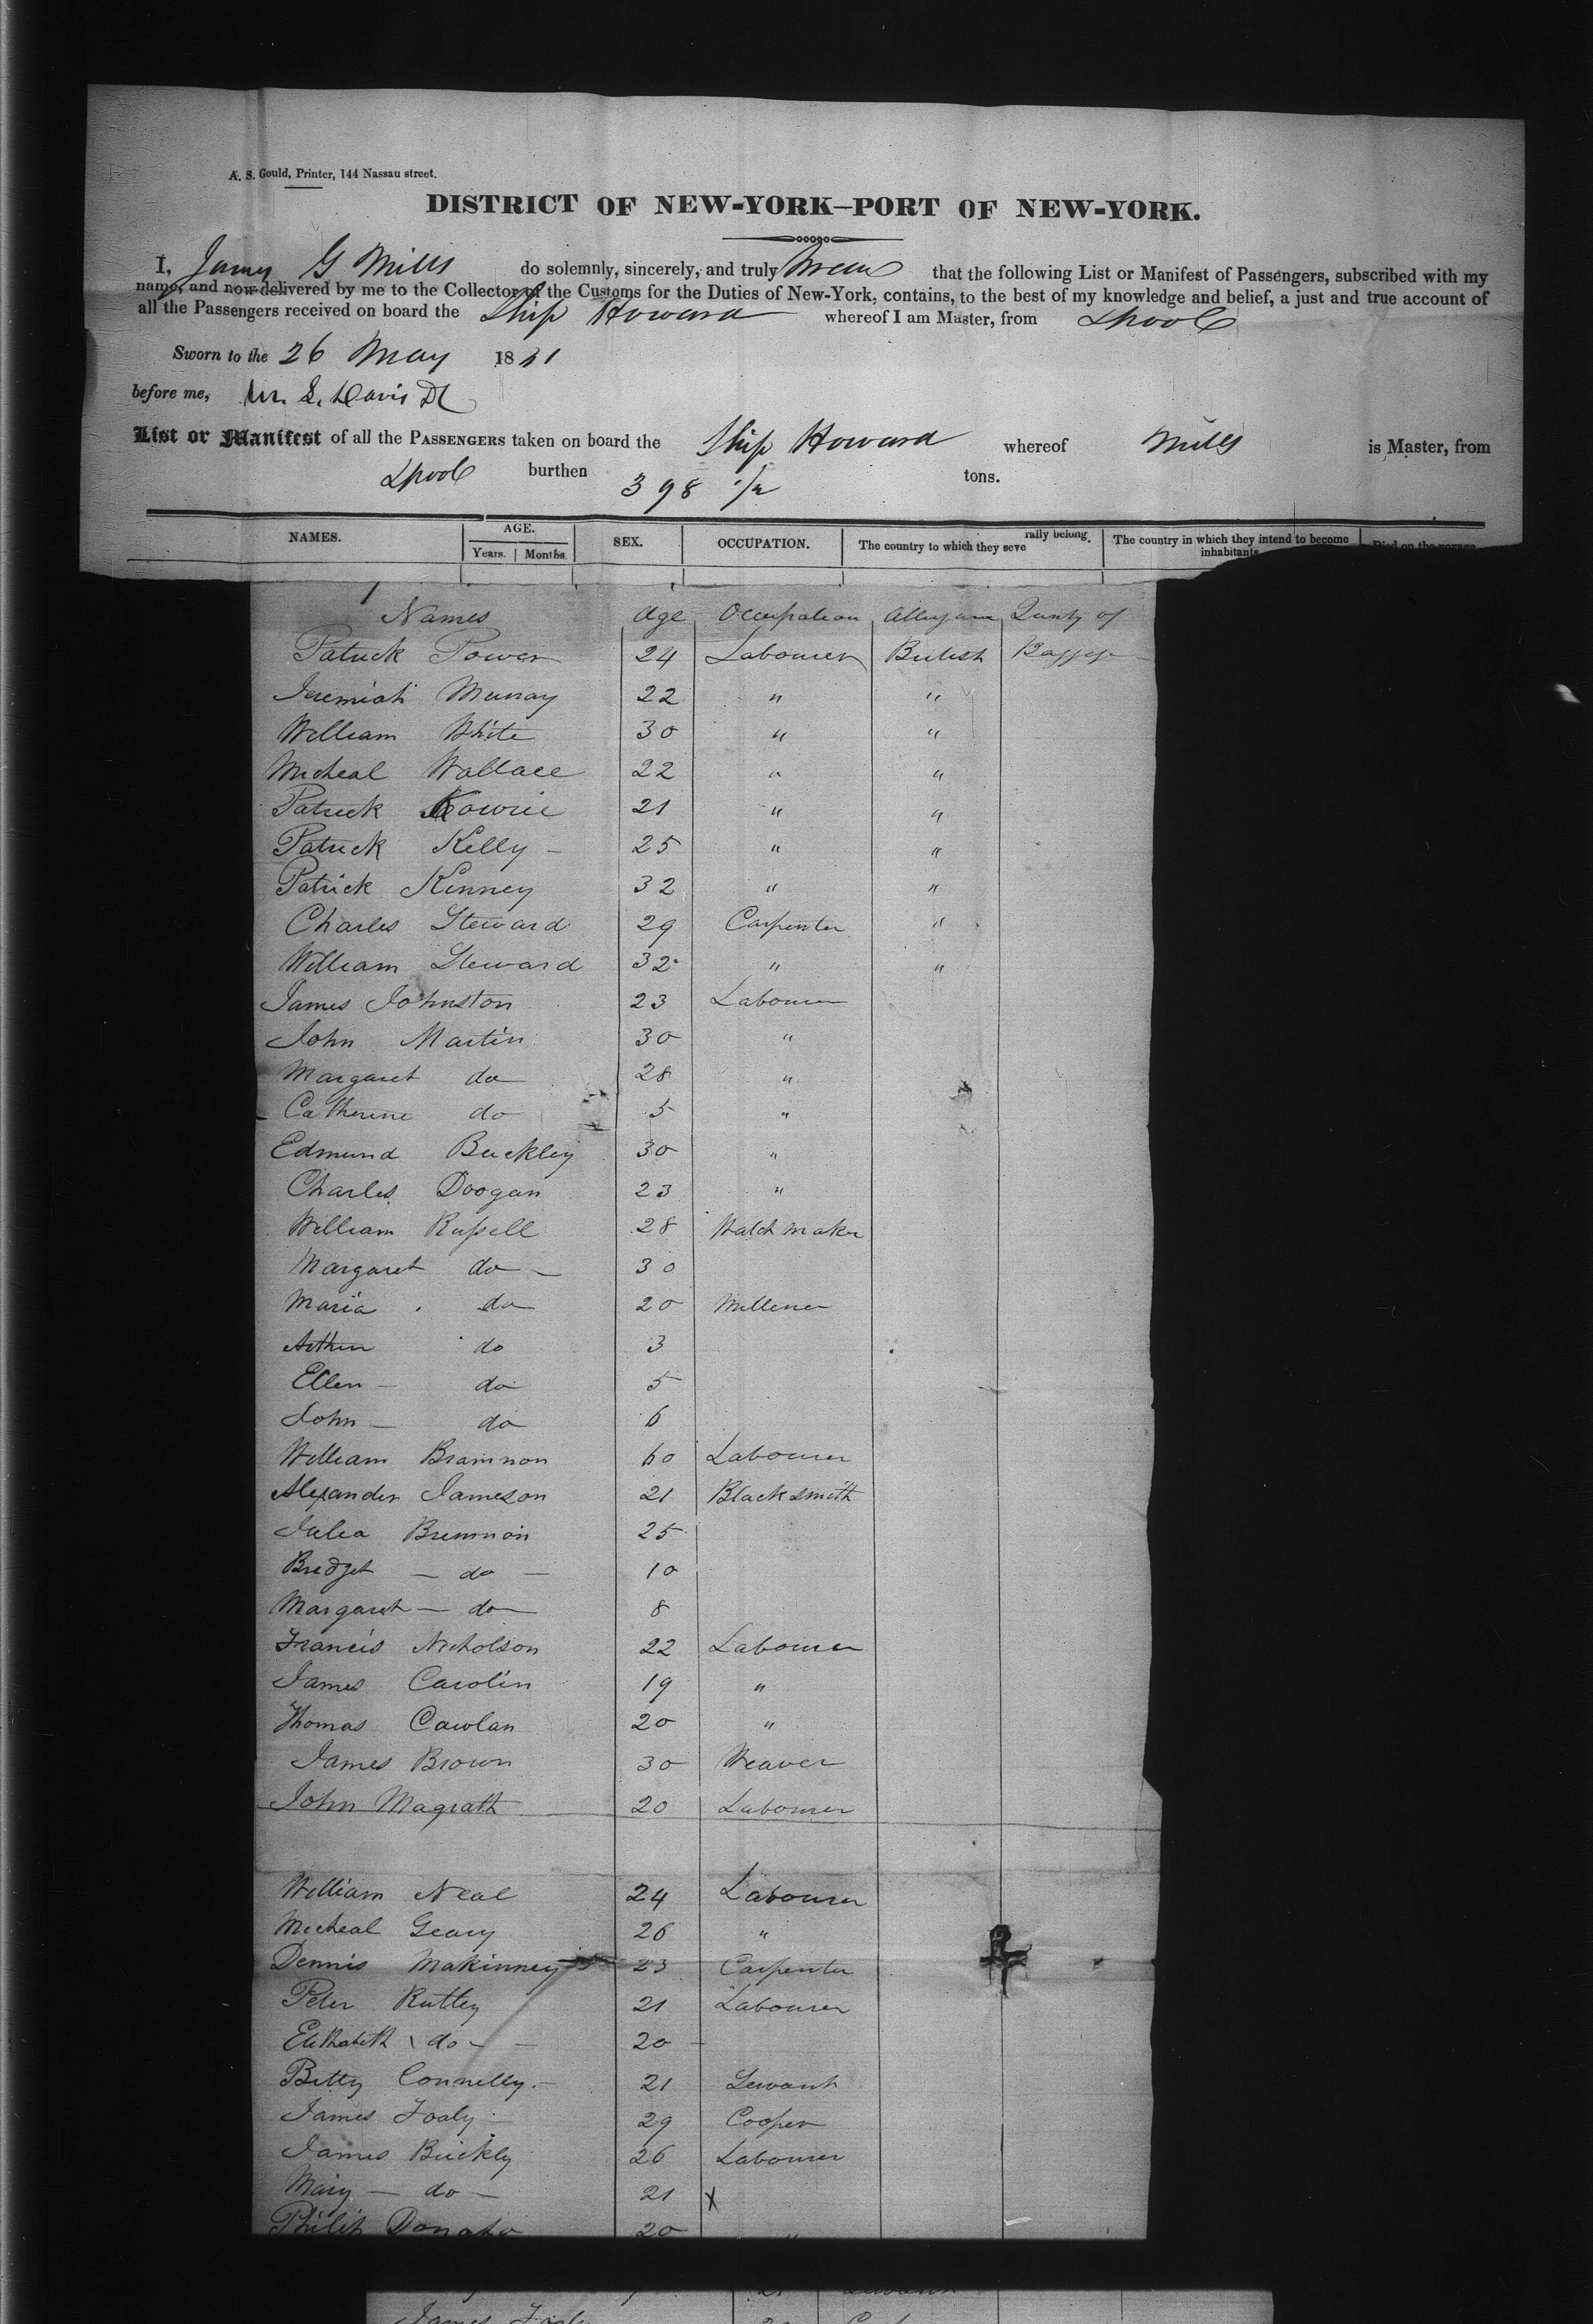 A. S. Gould, Printer, 144 Nassau street.
DISTRICT OF NEW-YORK—PORT OF NEW-YORK.
I, James G Mills do solemnly, sincerely, and truly swear that the following List or Manifest of Passengers, subscribed with my
name, and now delivered by me to the Collector of the Customs for the Duties of New-York, contains, to the best of my knowledge and belief, a just and true account of
all the Passengers received on board the Ship Howard whereof I am Master, from Lpool
Sworn to the 26 May 18
before me, Davis
List or Manifest of all the PASSENGERS taken on board the Ship Howard whereof Mills is Master, from
Lpool burthen 398 tons.
NAMES. AGE. SEX. OCCUPATION. The country to which they severally belong. The country in which they intend to become inhabitants Died on the voyage
Years. Months.
Names Age Occupation Qunty of
Patrick Power 24 Labourer British Baggage
Jeremiah Murray 22 " "
William White 30 " "
Micheal Wallace 22 " "
Patrick 21 " "
Patrick Kelly – 25 " "
Patrick Kinney 32 " "
Charles Steward 29 Carpenter "
William Steward 32 " "
James Johnston 23 Labourer
John Martin 30 "
Margaret do 28 "
Catherine do 5 "
Edmund Buckley 30 "
Charles Doogan 23 "
William Russell 28 Watch maker
Margaret do – 30
Maria do 20 Millener
Arthur do 3
Ellen – do 5
John – do 6
William Brannon 60 Labourer
Alexander Jameson 21 Black Smith
Julia Brennon 25
Bredget – do – 10
Margaret – do 8
Francis Nicholson 22 Labourer
James Carolin 19 "
Thomas Cawlan 20 "
James Brown 30 Weaver
John Magrath 20 Labourer
William Neal 24 Labourer
Micheal Geary 26 "
Dennis Makinney 23 Carpenter
Peter Rutley 21 Labourer
do – 20
Betty Connelly. – 21 Servant
James Foaly 29 Cooper
James Buckly 26 Labourer
Mary – do – 21 X
Philip Donaho 20 "
James